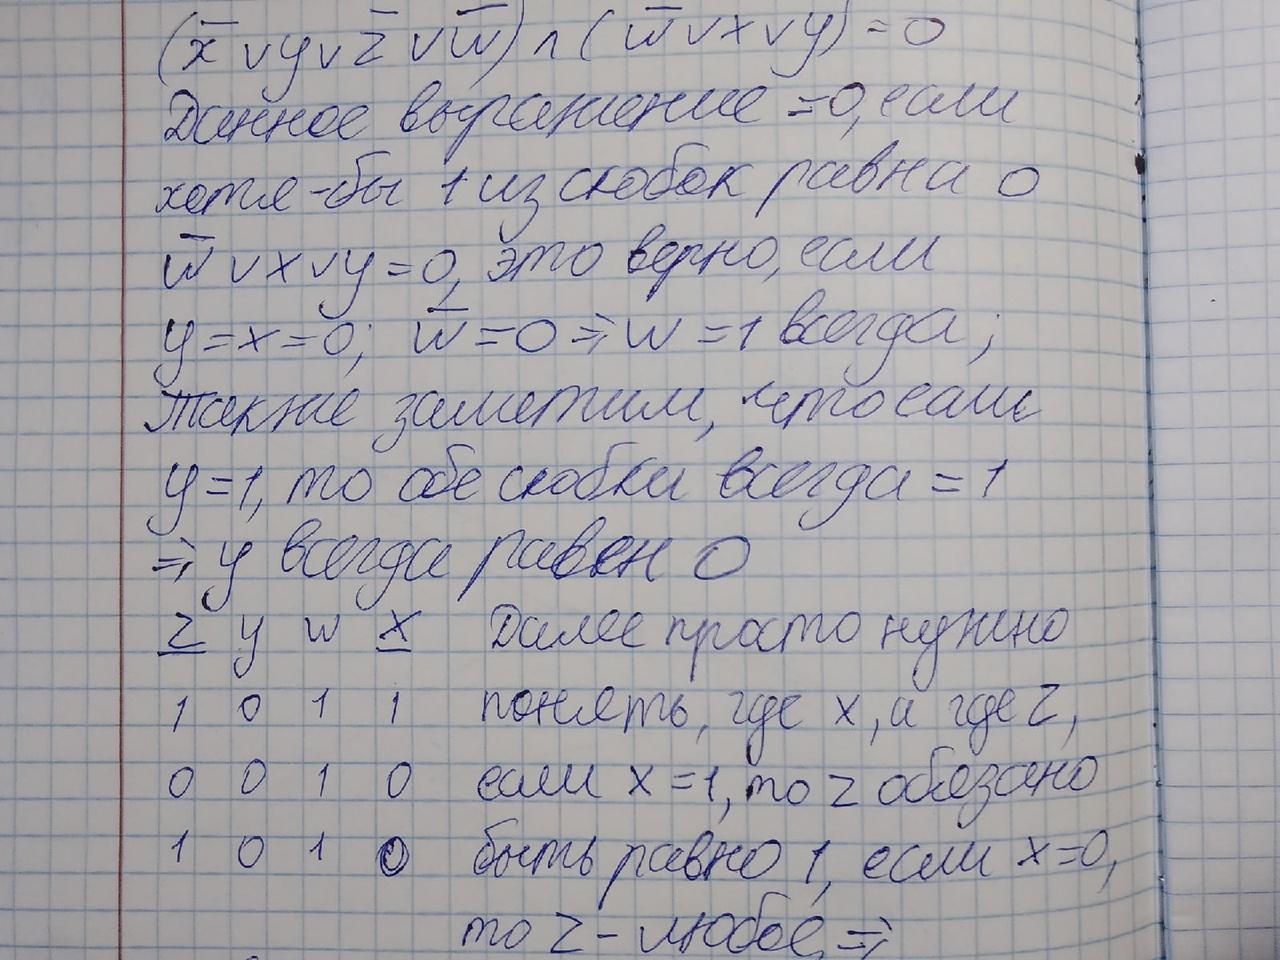 (x̅ ∨ y ∨ z̅ ∨ w̅) ∧ ( w̅ ∨ x ∨ y) = 0
Данное выражение =0, если
хотя-бы 1 из скобок равна 0
w̅ ∨ x ∨ y = 0, это верно, если
y = x = 0; w̅ = 0 ⇒ w = 1 всегда;
также заметим, что если
y = 1, то обе скобки всегда = 1
⇒ y всегда равен 0
z y w x Далее просто нужно
1 0 1 1 понять, где x, а где z,
0 0 1 0 если x = 1, то z обязано
1 0 1 0 быть равно 1, если x = 0,
то z - любое, ⇒